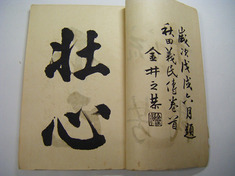 歲次戊戌六月題
秋田義民傳卷首
金井之恭
壮心